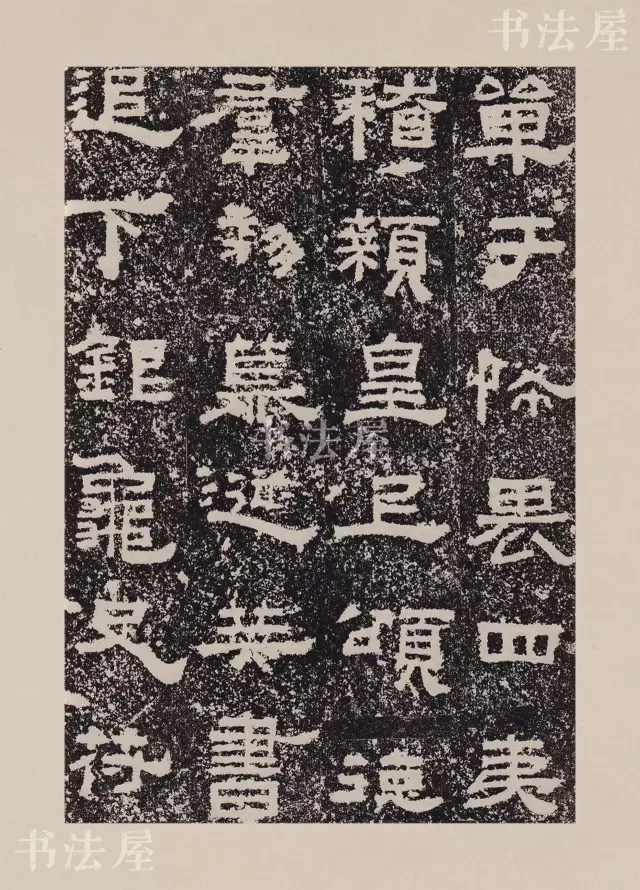 书法屋
單于怖畏四夷
稽顙皇上頌德
羣黎慕涎策書
追下銀龜史符
书法屋
书法屋